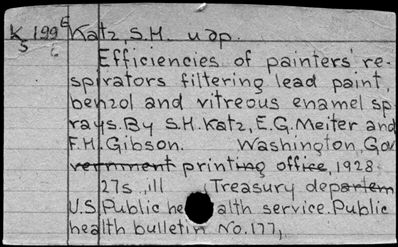 K 199 E Katz S.M. u dp.
5 6 Efficiencies of painters' re-
spirators filtering lead paint,
benzol and vitreous enamel sp-
rays. By S.H. Katz, E.G. Meiter and
F.H. Gibson. Washington, Gov
vernment printing office, 1928.
27s. ill Treasury departem
U.S. Public health service. Public
health bulletin No. 177,